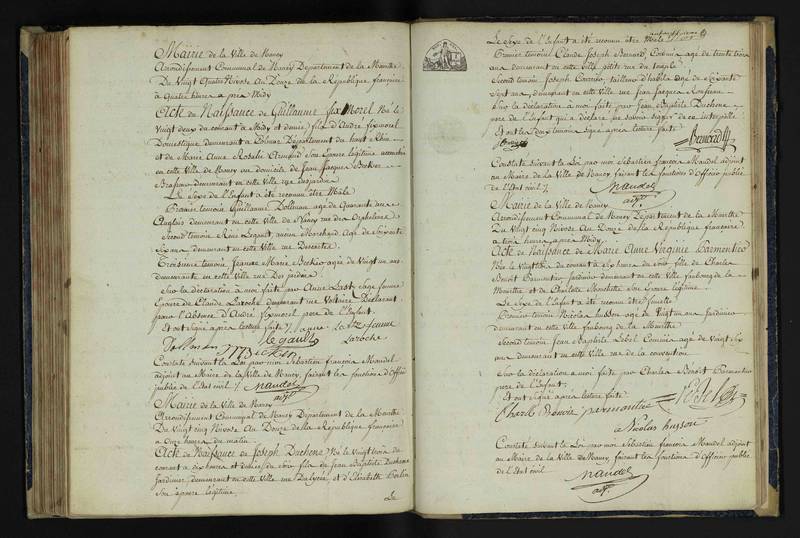 Mairie de la Ville de Nancy
Arrondissement Communal de Nancy Département de la Meurthe
Du Vingt Quatre Nivose An Douze de la République française
à Quatre heures après Midy
Acte de Naissance de Guillaume Fix Morel Né le
Vingt deux du courant à Midy et demie, fils d'André fixmorel
Domestique demeurant à Colmar Département du haut Rhin
et de Marie Anne Rosalie Son Epouse légitime
en cette Ville de Nancy au domicile de Jean Jacques
demeurant en cette Ville rue des jardins
Le Sexe de l'Enfant a été reconnu être Mâle
Premier temoin Guillaume Dollman agé de Quarante
Anglais demeurant en cette Ville de Nancy rue des
Second temoin Legault, ancien Marchand Agé de Soixante
Six ans, demeurant en cette Ville rue Descartes
Troisième temoin, françoise Marie agée de Vingt un ans
demeurante en cette Ville rue Des jardins
Sur la déclaration à moi faite par Anne Lastz Sage femme
Epouse de Claude Laroche demeurant rue Voltaire Declarant
pour l'absence d'André fixmorel père de l'Enfant.
Et ont Signé après lecture faite /. anne Lastz femme
Laroche
Dollman le gault
Constaté Suivant la Loi par moi Sébastien françois Mandel
adjoint au Maire de la Ville de Nancy, faisant les fonctions d'Officier
public de l'Etat civil /. Mandel
adjt
Mairie de la Ville de Nancy
Arrondissement Communal de Nancy Département de la Meurthe
Du Vingt cinq Nivose An Douze de la République française
à Onze heures du matin
Acte de Naissance de Joseph Duchene, Né le Vingt trois du
courant à dix heures et demie du Soir fils de Jean Baptiste Duchene
Jardinier demeurant en cette Ville rue du lycée et d'Elizabeth
Son épouse légitime.
Le
Le Sexe de l'Enfant a été reconnu être Mâle
Premier temoin Claude Joseph Bernard agé de trente trois
ans demeurant en cette Ville petite rue du temple
Second temoin Joseph tailleur d'habits agé de Soixante
Sept ans, demeurant en cette Ville rue Jean Jacques Rousseau
Sur la déclaration à moi faite par Jean Baptiste Duchene
père de l'Enfant qui a déclaré ne savoir signer de ce interpellé
Et ont les deux temoins signé après lecture faite
Bernard
Constaté Suivant la Loi par moi Sébastien françois Mandel adjoint
au Maire de la Ville de Nancy, faisant les fonctions d'Officier public
de l'Etat civil /. Mandel
adjt
Mairie de la Ville de Nancy
Arrondissement Communal de Nancy Département de la Meurthe
Du Vingt cinq Nivose An Douze de la République française
à trois heures après Midy
Acte de Naissance de Marie Anne Virginie Parmentier
Née le Vingt du courant à Six heures du Soir fille de Charles
Benoit Parmentier jardinier demeurant en cette Ville faubourg de la
Meurthe et de Charlotte Son Epouse légitime
Le Sexe de l'Enfant a été reconnu être femelle
Premier temoin Nicolas husson agé de Vingt un ans jardinier
demeurant en cette Ville faubourg de la Meurthe
Second temoin Jean Baptiste Lebel Commis agé de Vingt Six
ans demeurant en cette Ville rue de la convention
Sur la déclaration à moi faite par Charles Benoit Parmentier
père de l'Enfant.
Et ont Signé après lecture faite.
Charle Benoit parmentier
Nicolas husson
Constaté Suivant la Loi par moi Sébastien françois Mandel adjoint
au Maire de la Ville de Nancy, faisant les fonctions d'Officier public
de l'Etat civil.
Mandel
adjt